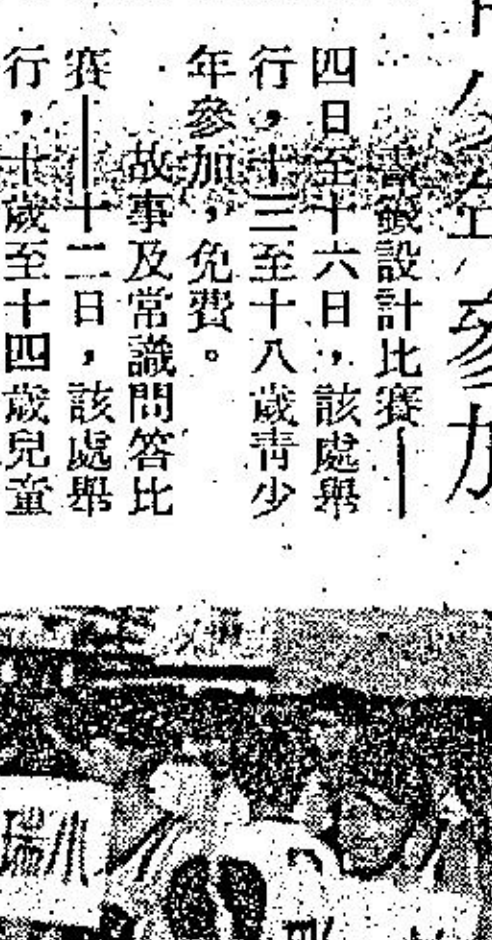 少年參加
書籤設計比賽——
四日至十六日，該處舉
行，十三至十八歲靑少
年參加，免費。
故事及常識問答比
賽——十二日，該處舉
行，十歲至十四歲兒童
瑞川